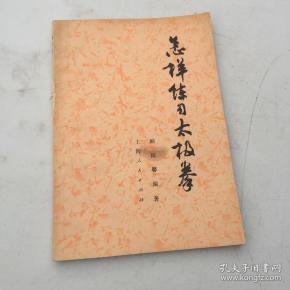 怎样练习太极拳
顾留馨编著
上海人民出版社
孔夫子旧书网